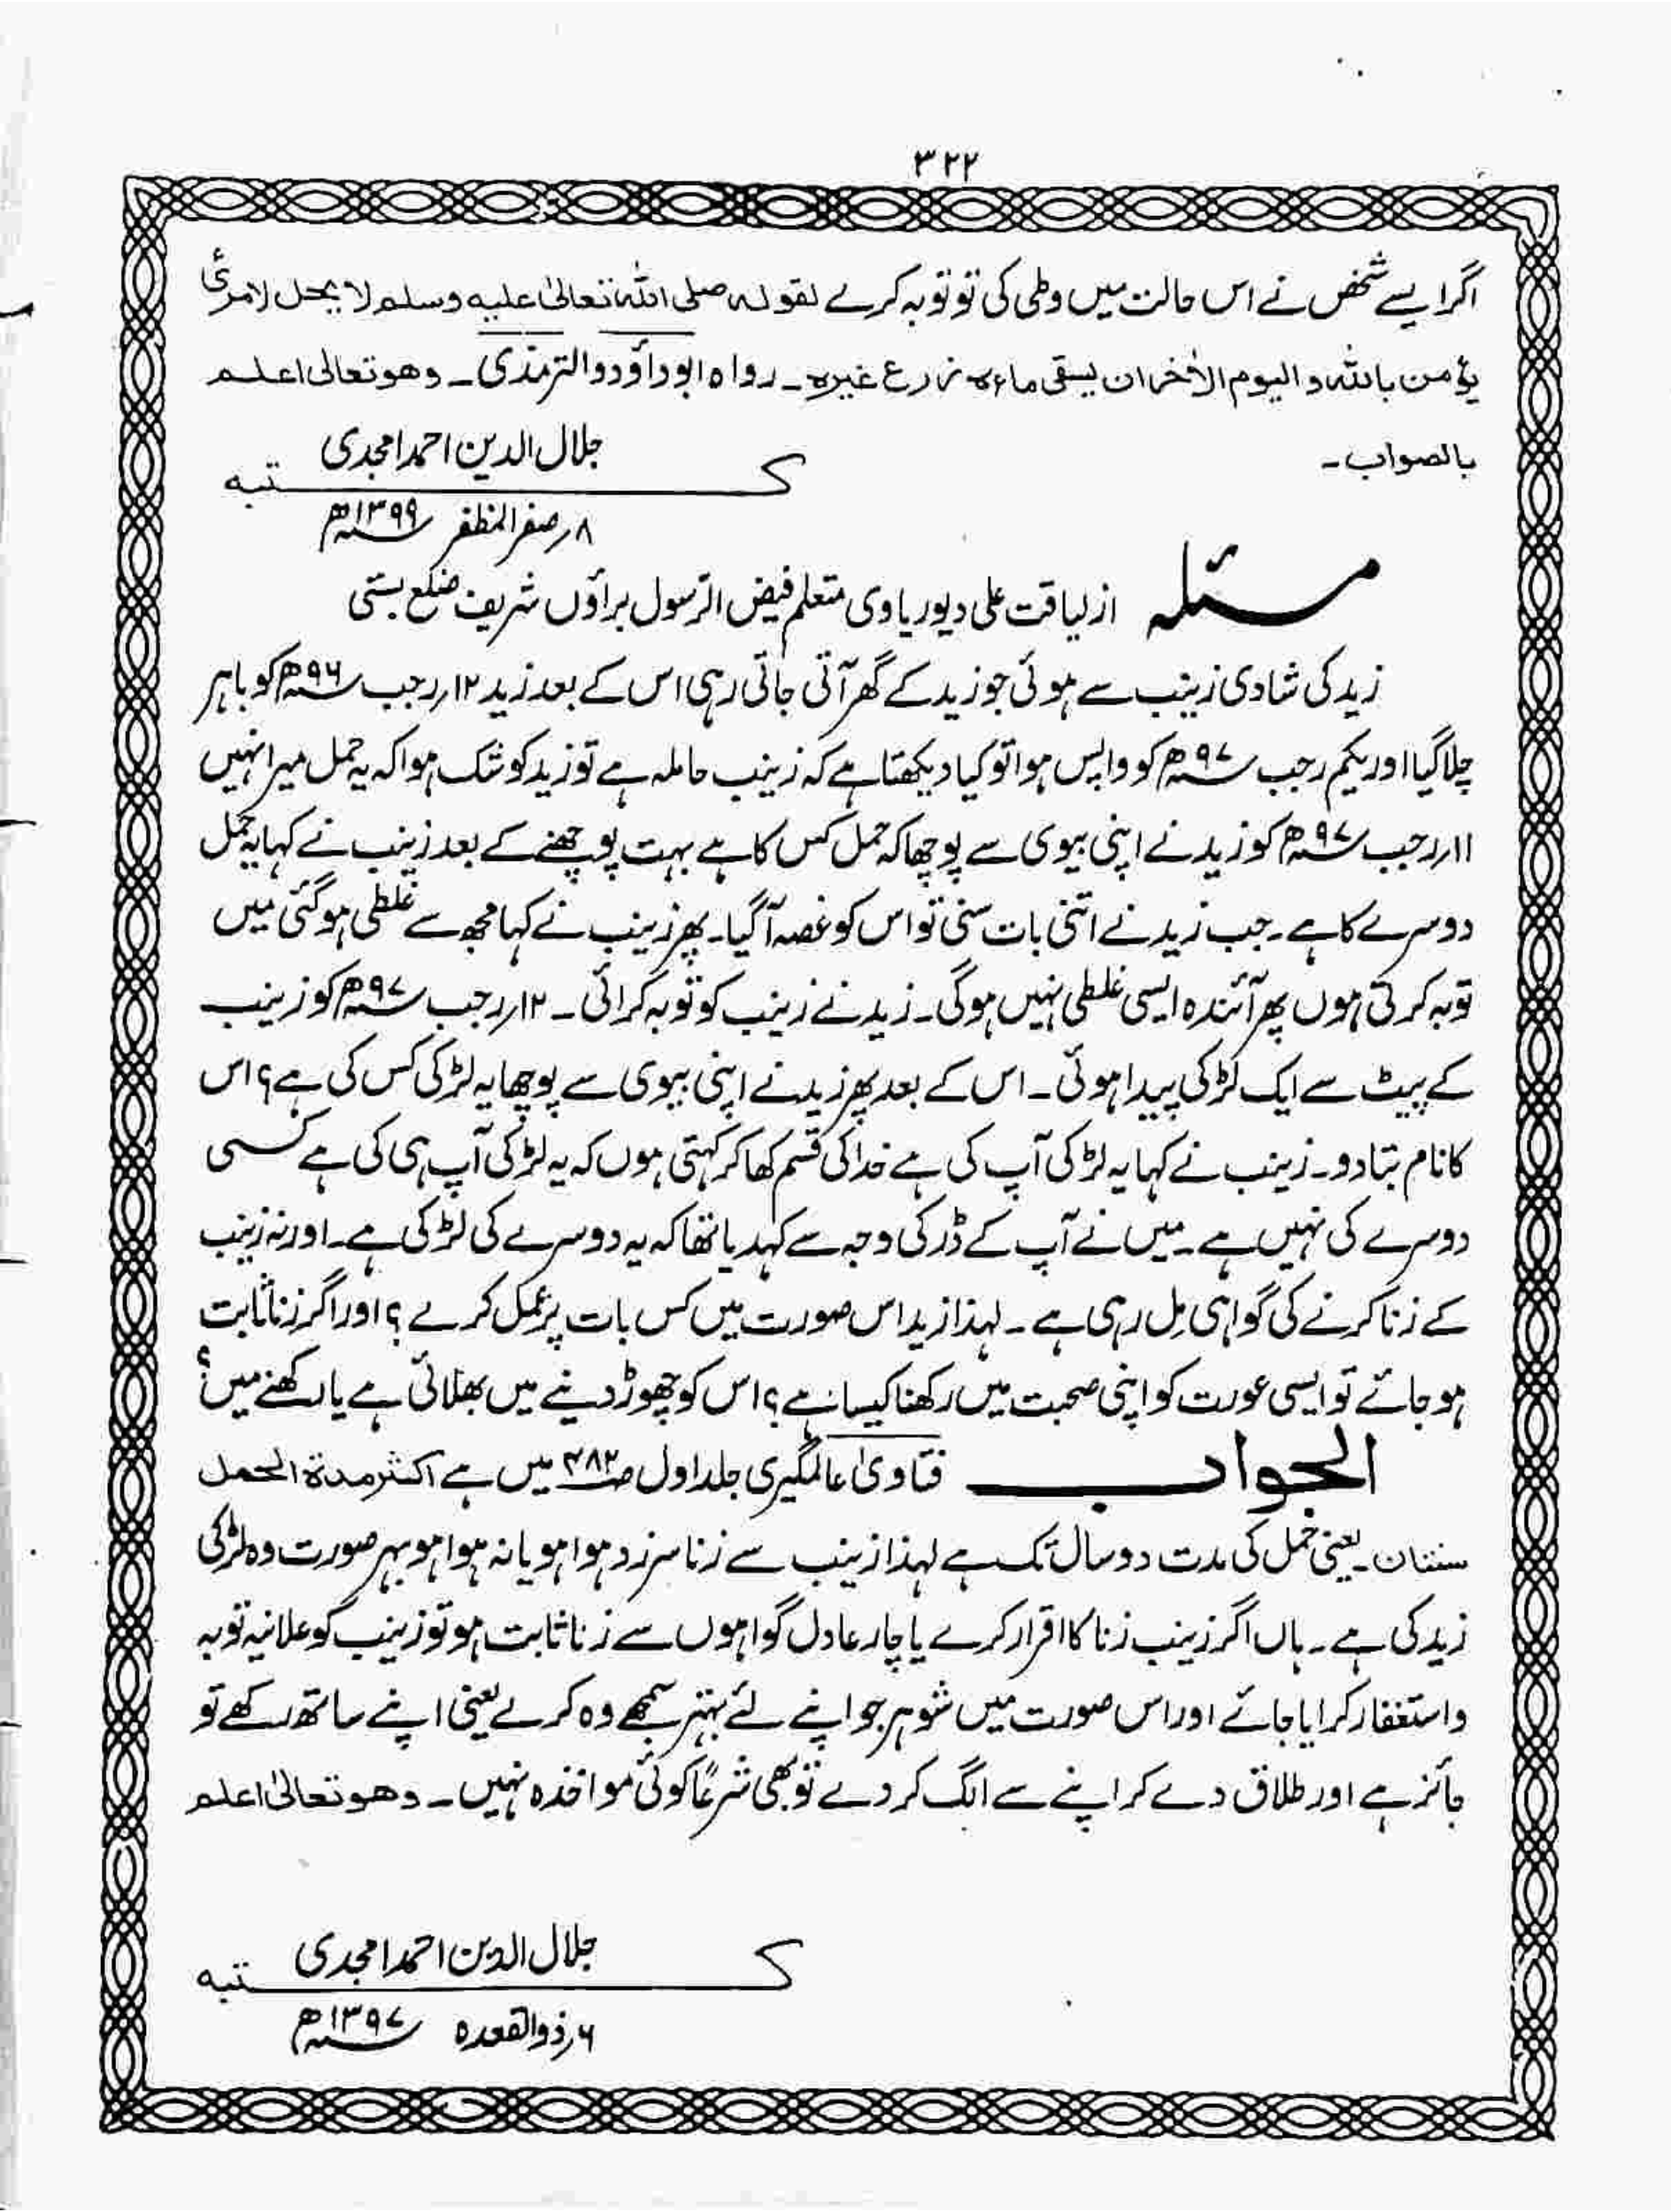 ۳۲۲
اگر ایسے شخص نے اس حالت میں وطی کی تو توبہ کرے لقولہ صلی اللہ تعالیٰ علیہ وسلم لا یحل لامرئ
یؤمن باللہ و الیوم الاٰخر ان یسقی ماءہ زرع غیرہ ۔ رواہ ابوداؤد والترمذی ۔ وھو تعالیٰ اعلم
بالصواب ۔
جلال الدین احمد امجدی
کتبہ
۸ر صفر المظفر ۱۳۹۹ھ
مسئلہ از لیاقت علی دیوریاوی متعلم فیض الرسول براؤں شریف ضلع بستی
زید کی شادی زینب سے ہوئی جو زید کے گھر آتی جاتی رہی اس کے بعد زید ۱۲ر رجب ۹۶ھ کو باہر
چلا گیا اور یکم رجب ۹۷ھ کو واپس ہوا تو کیا دیکھتا ہے کہ زینب حاملہ ہے تو زید کو شک ہوا کہ یہ حمل میرا نہیں
۱۱ر رجب ۹۷ھ کو زید نے اپنی بیوی سے پوچھا کہ حمل کس کا ہے بہت پوچھنے کے بعد زینب نے کہا یہ حمل
دوسرے کا ہے ۔ جب زید نے اتنی بات سنی تو اس کو غصہ آگیا ۔ پھر زینب نے کہا مجھ سے غلطی ہوگئی میں
توبہ کرتی ہوں پھر آئندہ ایسی غلطی نہیں ہوگی ۔ زید نے زینب کو توبہ کرائی ۔ ۱۲ر رجب ۹۷ھ کو زینب
کے پیٹ سے ایک لڑکی پیدا ہوئی ۔ اس کے بعد پھر زید نے اپنی بیوی سے پوچھا یہ لڑکی کس کی ہے؟ اس
کا نام بتا دو ۔ زینب نے کہا یہ لڑکی آپ کی ہے خدا کی قسم کھا کر کہتی ہوں کہ یہ لڑکی آپ ہی کی ہے کسی
دوسرے کی نہیں ہے ۔ میں نے آپ کے ڈر کی وجہ سے کہدیا تھا کہ یہ دوسرے کی لڑکی ہے ۔ اور نہ زینب
کے زنا کرنے کی گواہی مل رہی ہے ۔ لہذا زید اس صورت میں کس بات پر عمل کرے؟ اور اگر زنا ثابت
ہو جائے تو ایسی عورت کو اپنی صحبت میں رکھنا کیسا ہے؟ اس کو چھوڑ دینے میں بھلائی ہے یا رکھنے میں؟
الجواب فتاویٰ عالمگیری جلد اول ص۴۸۲ میں ہے اکثر مدۃ الحمل
سنتان ۔ یعنی حمل کی مدت دو سال تک ہے لہذا زینب سے زنا سرزد ہوا ہو یا نہ ہوا ہو بہر صورت وہ لڑکی
زید کی ہے ۔ ہاں اگر زینب زنا کا اقرار کرے یا چار عادل گواہوں سے زنا ثابت ہو تو زینب کو علانیہ توبہ
و استغفار کرایا جائے اور اس صورت میں شوہر جو اپنے لئے بہتر سمجھے وہ کرے یعنی اپنے ساتھ رکھے تو
جائز ہے اور طلاق دے کر اپنے سے الگ کر دے تو بھی شرعاً کوئی مواخذہ نہیں ۔ وھو تعالیٰ اعلم
جلال الدین احمد امجدی
کتبہ
۶ر ذوالقعدہ ۱۳۹۷ھ